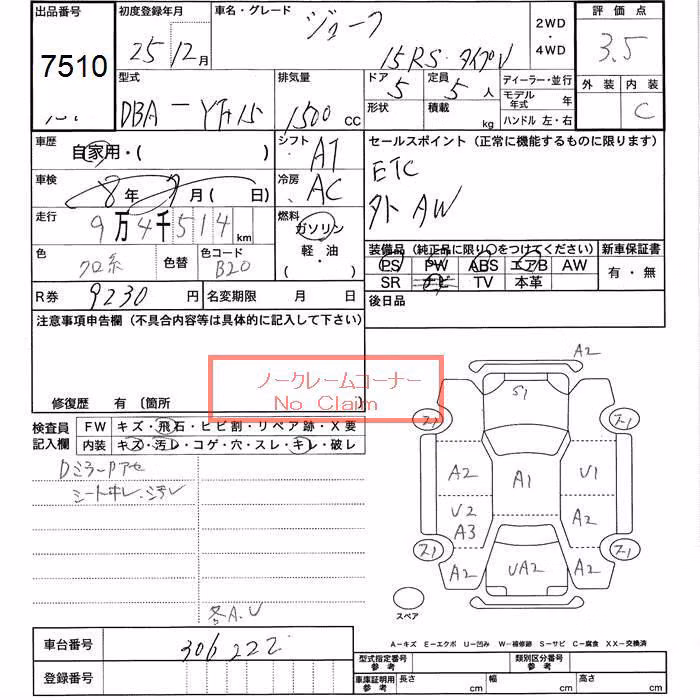 出品番号 初度登録年月 車名・グレード ジューク 2WD ・ 4WD 評価点
7510 25 12月 15RS タイプV 3.5
型式 排気量 ドア 5 定員 5人 ディーラー・並行 外装 内装
DBA-YF15 1500 cc 形状 積載 kg モデル年式 年 ハンドル 左・右 C
車歴 自家用・( ) シフト AT セールスポイント (正常に機能するものに限ります)
車検 8年 月 ( 日) 冷房 AC ETC
走行 9万4千514 km 燃料 ガソリン 軽・油 ・( ) 外AW
色 クロ系 色替 色コード B20 装備品 (純正品に限り○をつけてください) 新車保証書
PS PW ABS エアB AW 有・無
SR ナビ TV 本革
R券 9230 円 名変期限 月 日 後日品
注意事項申告欄 (不具合内容等は具体的に記入して下さい)
ノークレームコーナー
No Claim
修復歴 有 〔箇所 〕
検査員記入欄 FW キズ・飛石・ヒビ割・リペア跡・X要
内装 キズ・汚レ・コゲ・穴・スレ・キレ・破レ
DミラーPアセ
シートキレ・ヨゴレ
各A.U
A2
S1
ス1 ス1
A2 A1 U1
U2 A3 A2
ス1 ス1
A2 UA2 A2
スペア
A-キズ E-エクボ U-凹み W-補修跡 S-サビ C-腐食 XX-交換済
車台番号 306222
登録番号
型式指定番号 参考 類別区分番号 参考
車庫証明用 参考 長さ cm 幅 cm 高さ cm